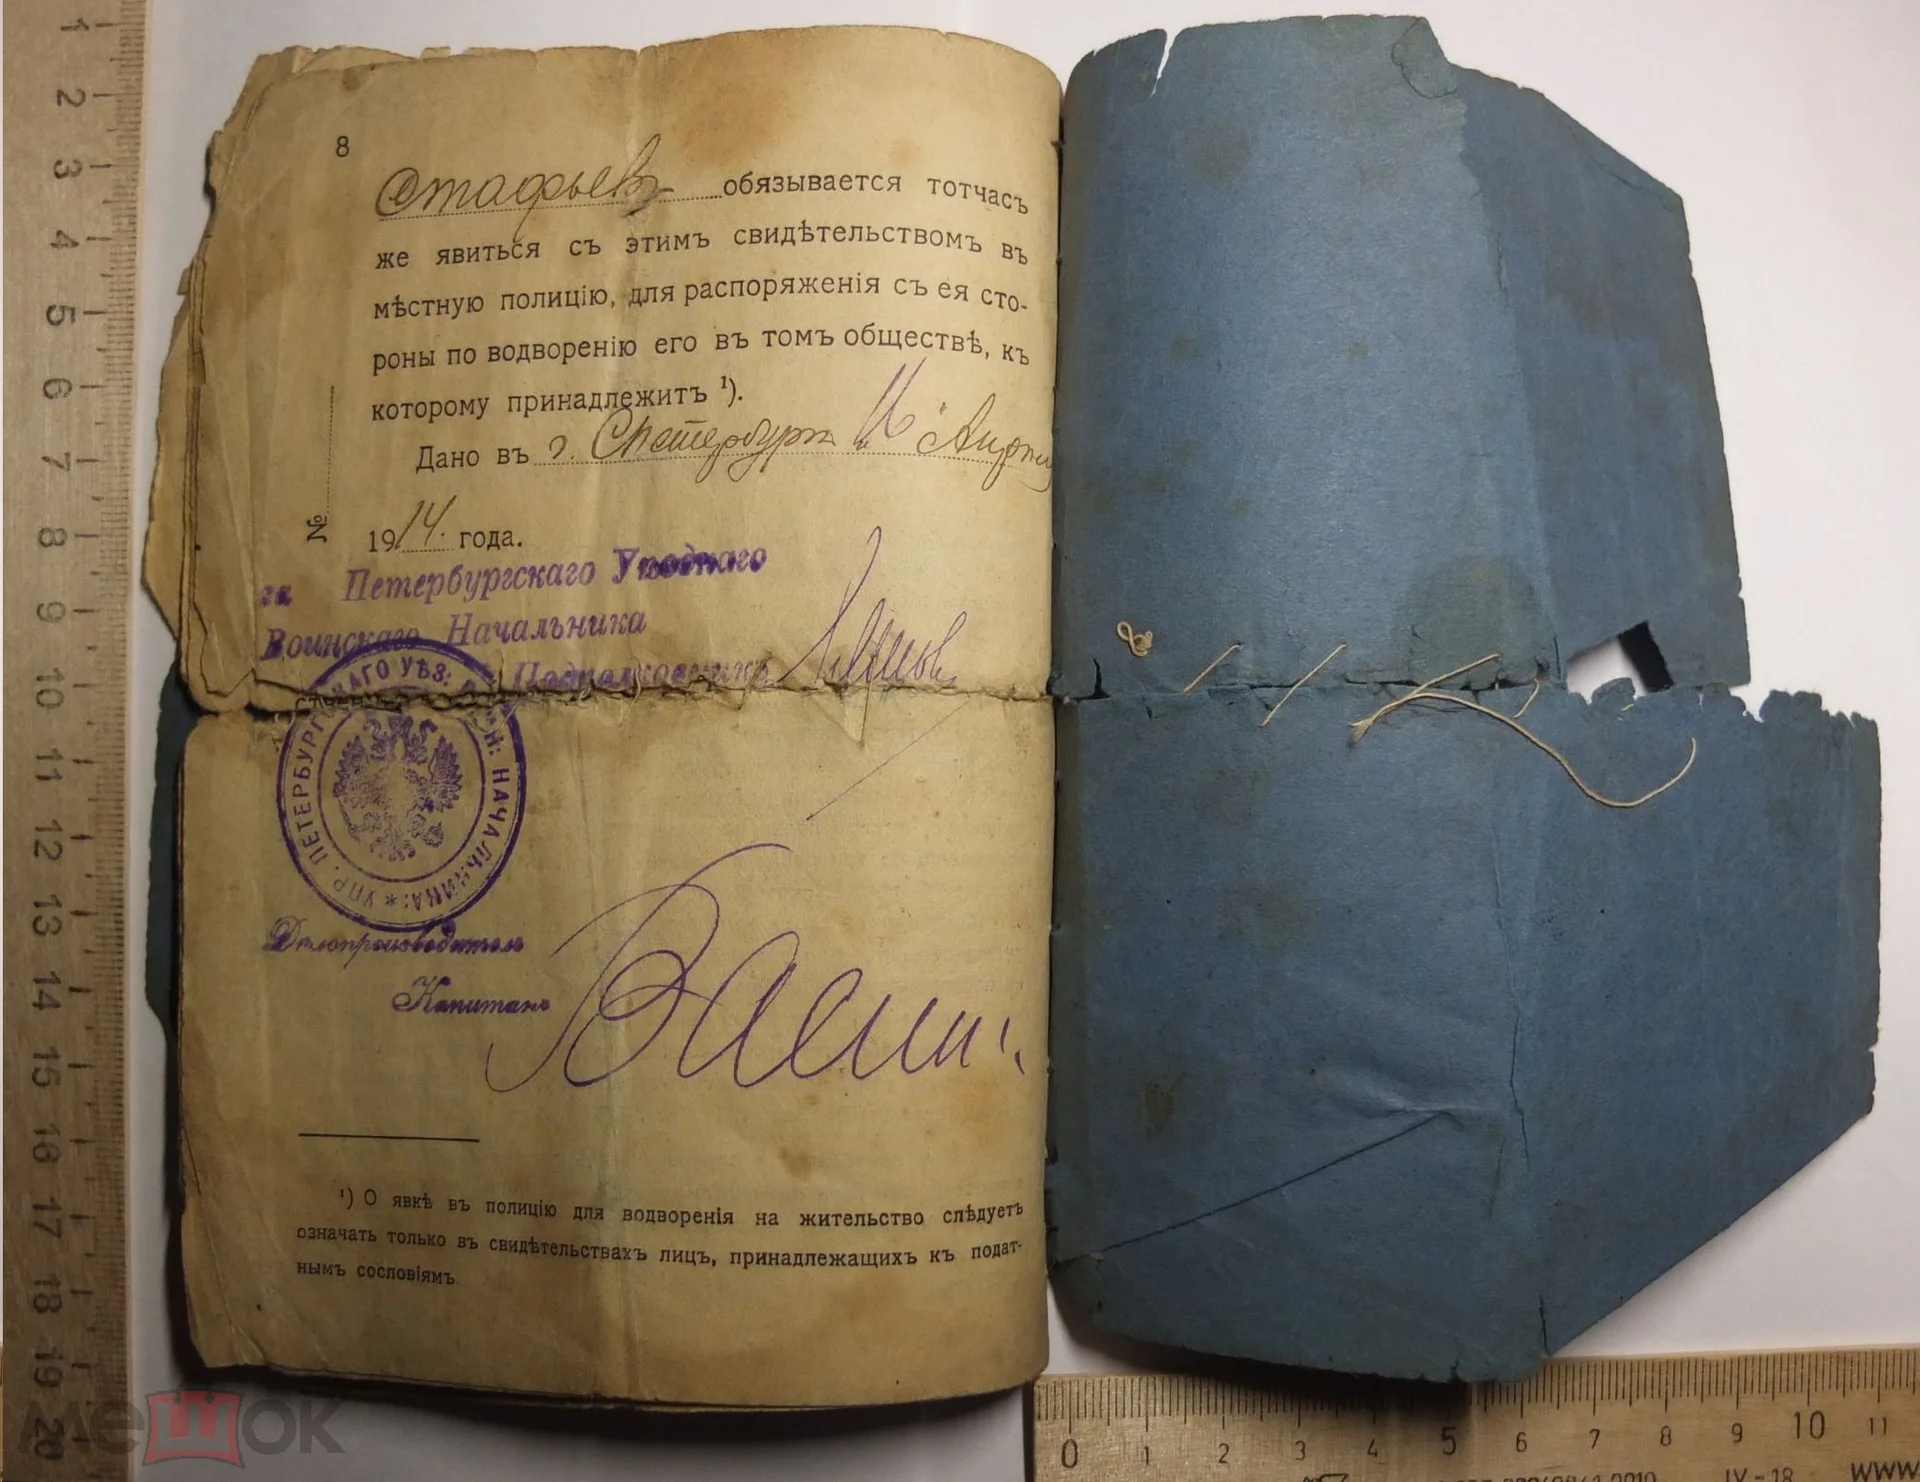 8
Стафьевъ обязывается тотчасъ
же явиться съ этимъ свидѣтельствомъ въ
мѣстную полицію, для распоряженія съ ея сто-
роны по водворенію его въ томъ обществѣ, къ
которому принадлежитъ ¹).
Дано въ г. СПетербургѣ „16"
№
1914. года.
за Петербургскаго Уѣзднаго
Воинскаго Начальника
Подполковникъ
УПР. ПЕТЕРБУРГСКАГО УѢЗ: ВОИН: НАЧАЛЬНИКА: *
Дѣлопроизводитель
Капитанъ
¹) О явкѣ въ полицію для водворенія на жительство слѣдуетъ
означать только въ свидѣтельствахъ лицъ, принадлежащихъ къ подат-
нымъ сословіямъ.
1 2 3 4 5 6 7 8 9 10 11 12 13 14 15 16 17 18 19 20
0 1 2 3 4 5 6 7 8 9 10 11
IV-18 www
мешок